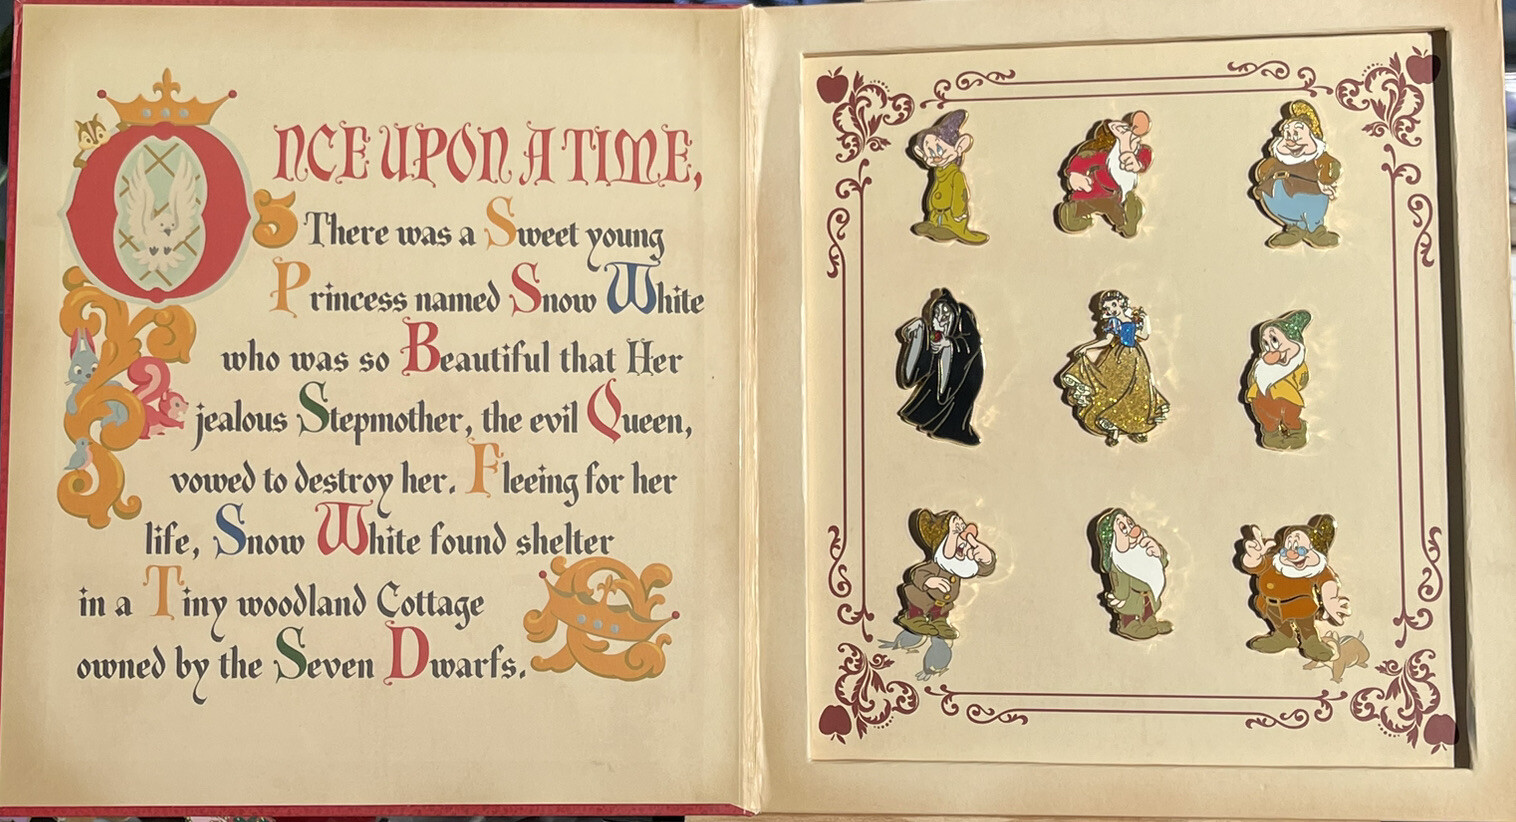 ONCE UPON A TIME,
There was a Sweet young
Princess named Snow White
who was so Beautiful that Her
jealous Stepmother, the evil Queen,
vowed to destroy her. Fleeing for her
life, Snow White found shelter
in a Tiny woodland Cottage
owned by the Seven Dwarfs.